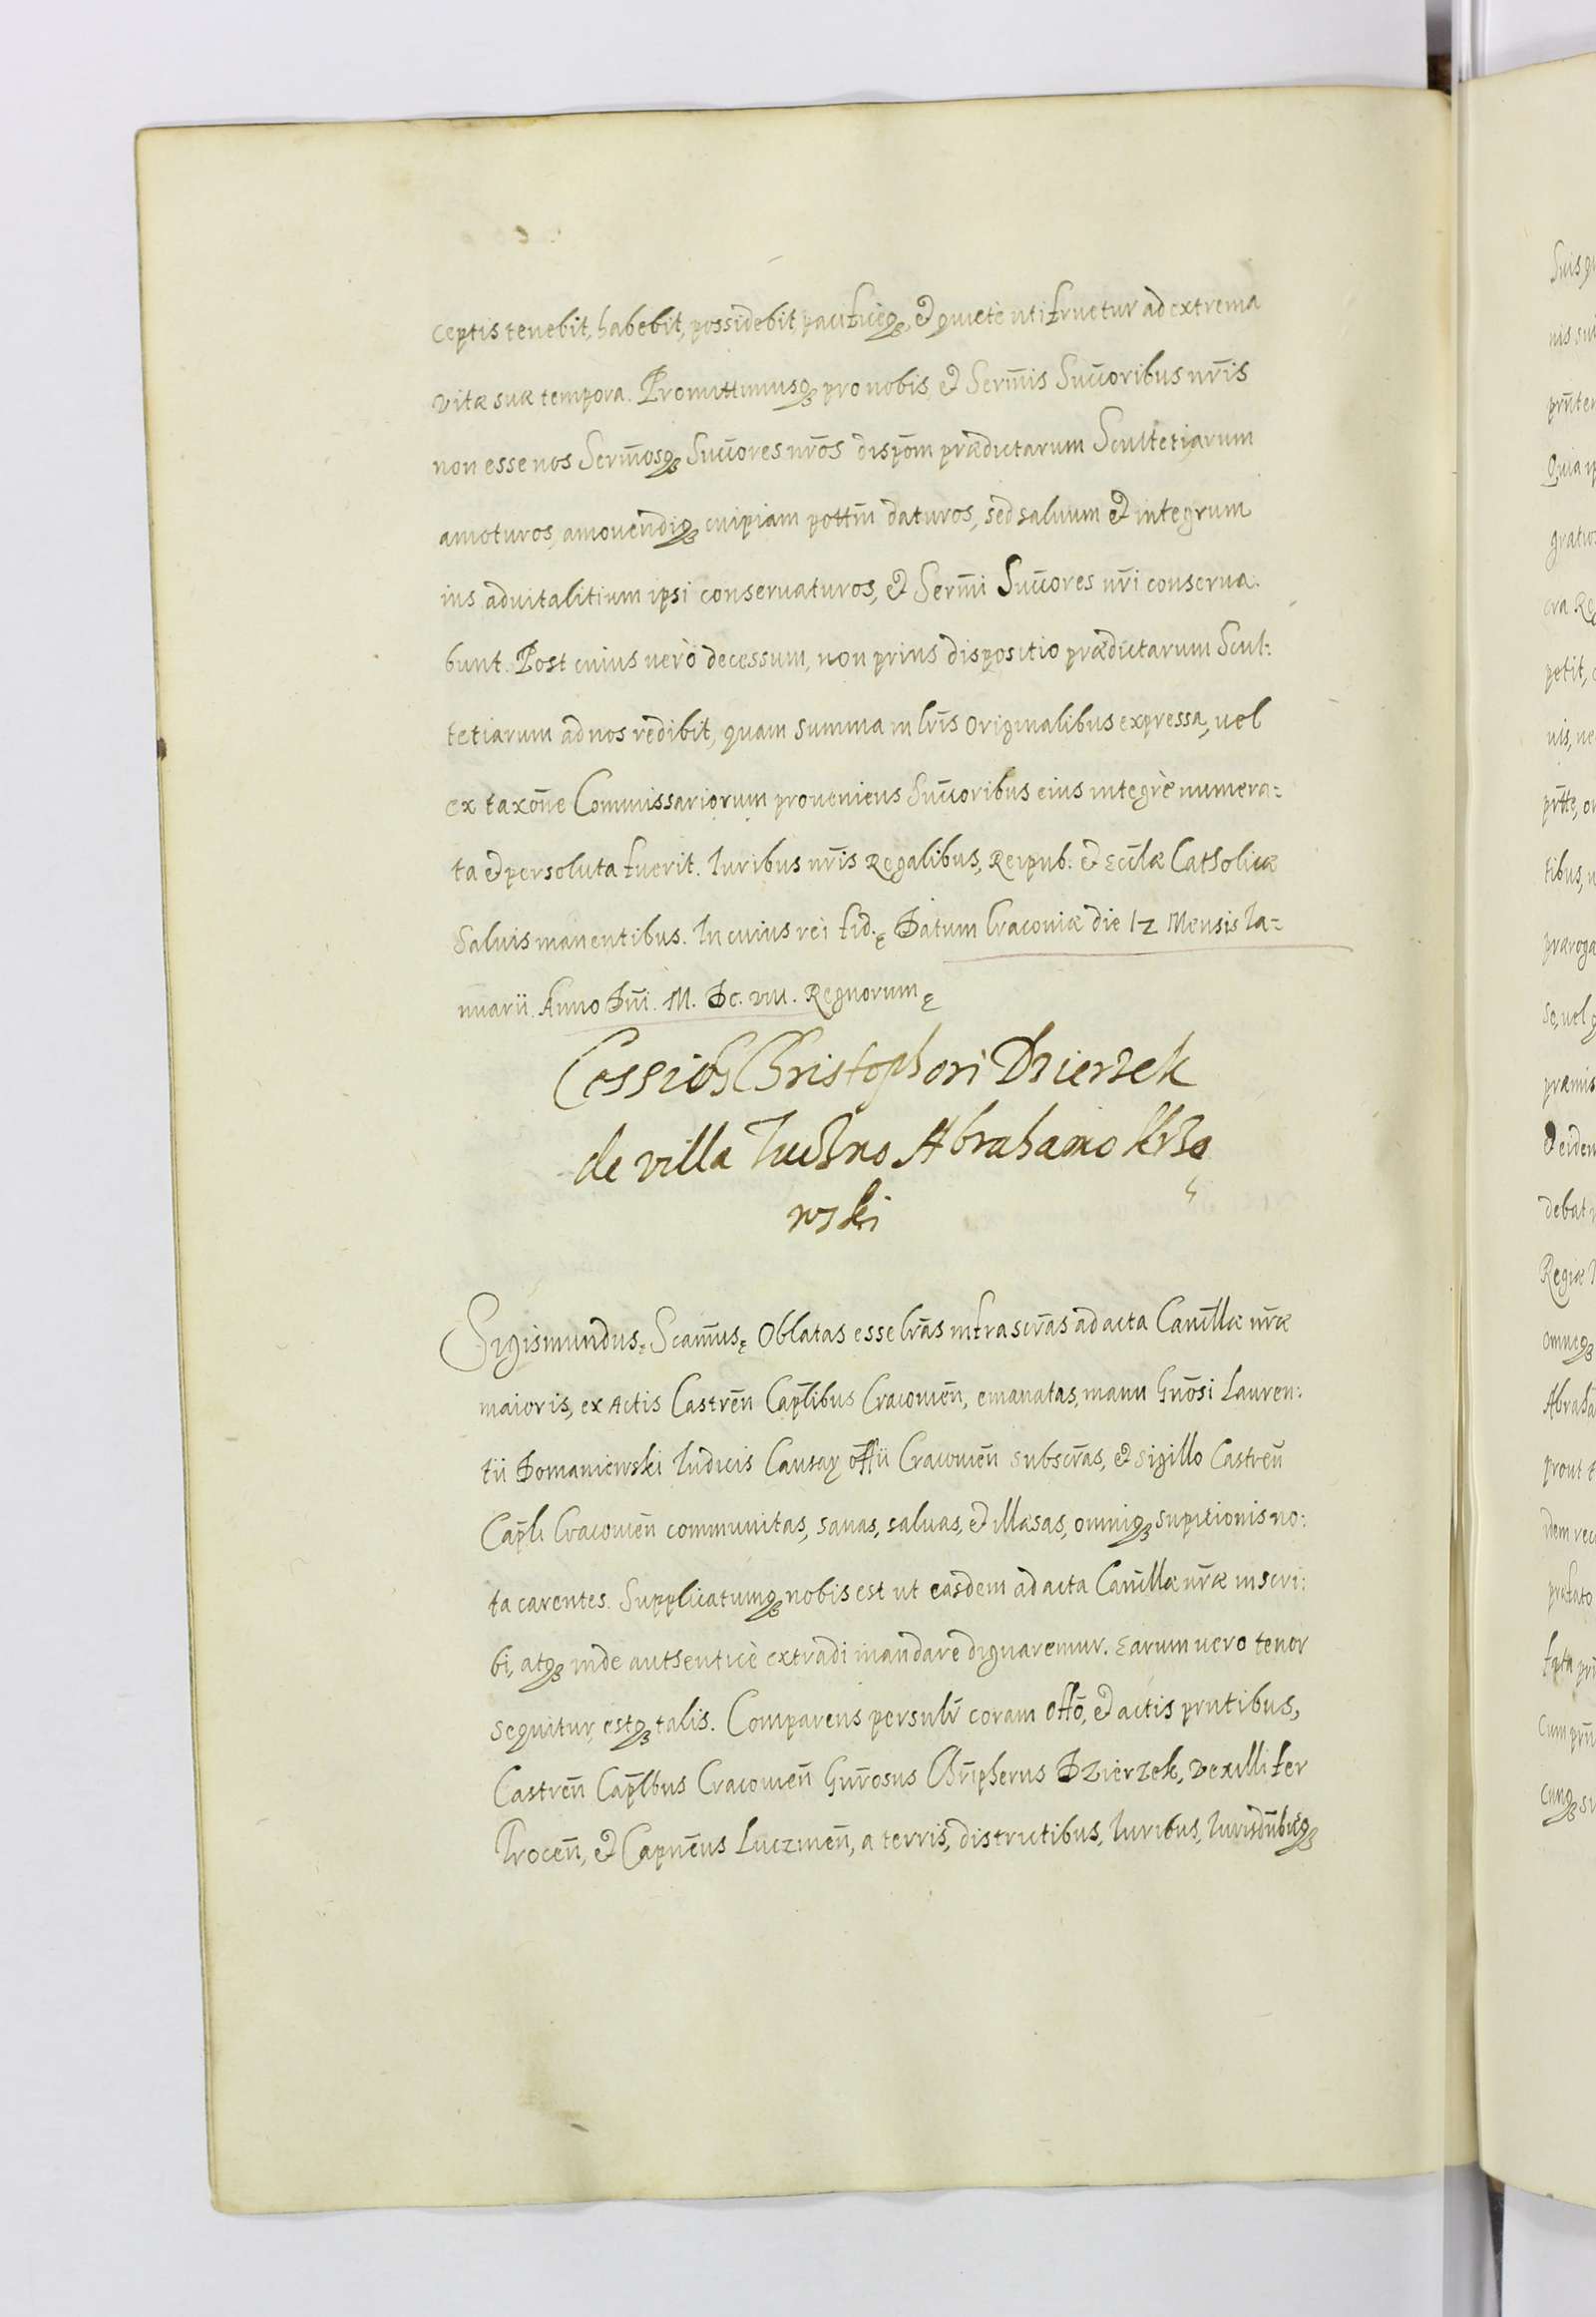 ceptis tenebit, habebit, possidebit, pacificeq₃, et quietè utifruetur ad extrema
vitæ suæ tempora. Promittimusq₃ pro nobis et Serm̃is Succ̃oribus nr̃is
non esse nos Serm̃osq₃ Succ̃ores nr̃os disp̃om prædictarum Scultetiarum
amoturos, amovendiq₃ cuipiam pottm̃ daturos, sed saluum et integrum
ius aduitalitium ipsi conseruaturos, et Serm̃i Succ̃ores nr̃i conserua:
bunt. Post cuius uerò decessum, non prius dispositio prædictarum Scul:
tetiarum ad nos redibit, quam summa in lr̃is originalibus expressa, uel
ex taxõne Commissariorum proueniens Succ̃oribus eius integrè numera:
ta et persoluta fuerit. Iuribus nr̃is Regalibus, Reipub: et Eccl̃æ Catholicæ
saluis manentibus. In cuius rei fid: Datum Cracoviæ die 12 Mensis Ia:
nuarii Anno Dñi. M. DC. VIII. Regnorum
Cessio Christophori Dzierzek
de villa Abrahamo
wski
Sigismundus, Scam̃us, Oblatas esse lr̃as infrascr̃as ad acta Canc̃llæ nr̃æ
maioris, ex Actis Castreñ Cap̃libus Cracovieñ, emanatas, manu Gñosi Lauren:
tii Domaniewski Iudicis Causaꝝ off̃ii Cracovieñ subscr̃as, et sigillo Castreñ
Cap̃li Cracovieñ communitas, sanas, saluas, et illæsas, omniq₃ supitionis no:
ta carentes. Supplicatumq₃ nobis est ut easdem ad acta Canc̃llæ nr̃æ inscri:
bi, atq₃ inde authenticè extradi mandare dignaremur. Earum uero tenor
sequitur, estq₃ talis. Comparens persolr̃ coram Off̃o, et actis prñtibus,
Castreñ Cap̃lbus Cracovieñ Gnr̃osus Chr̃ipherus Dzierzek, vexillifer
Troceñ, et Capneũs Luczineñ, a terris, districtibus, Iuribus, Iurisdñbusq₃